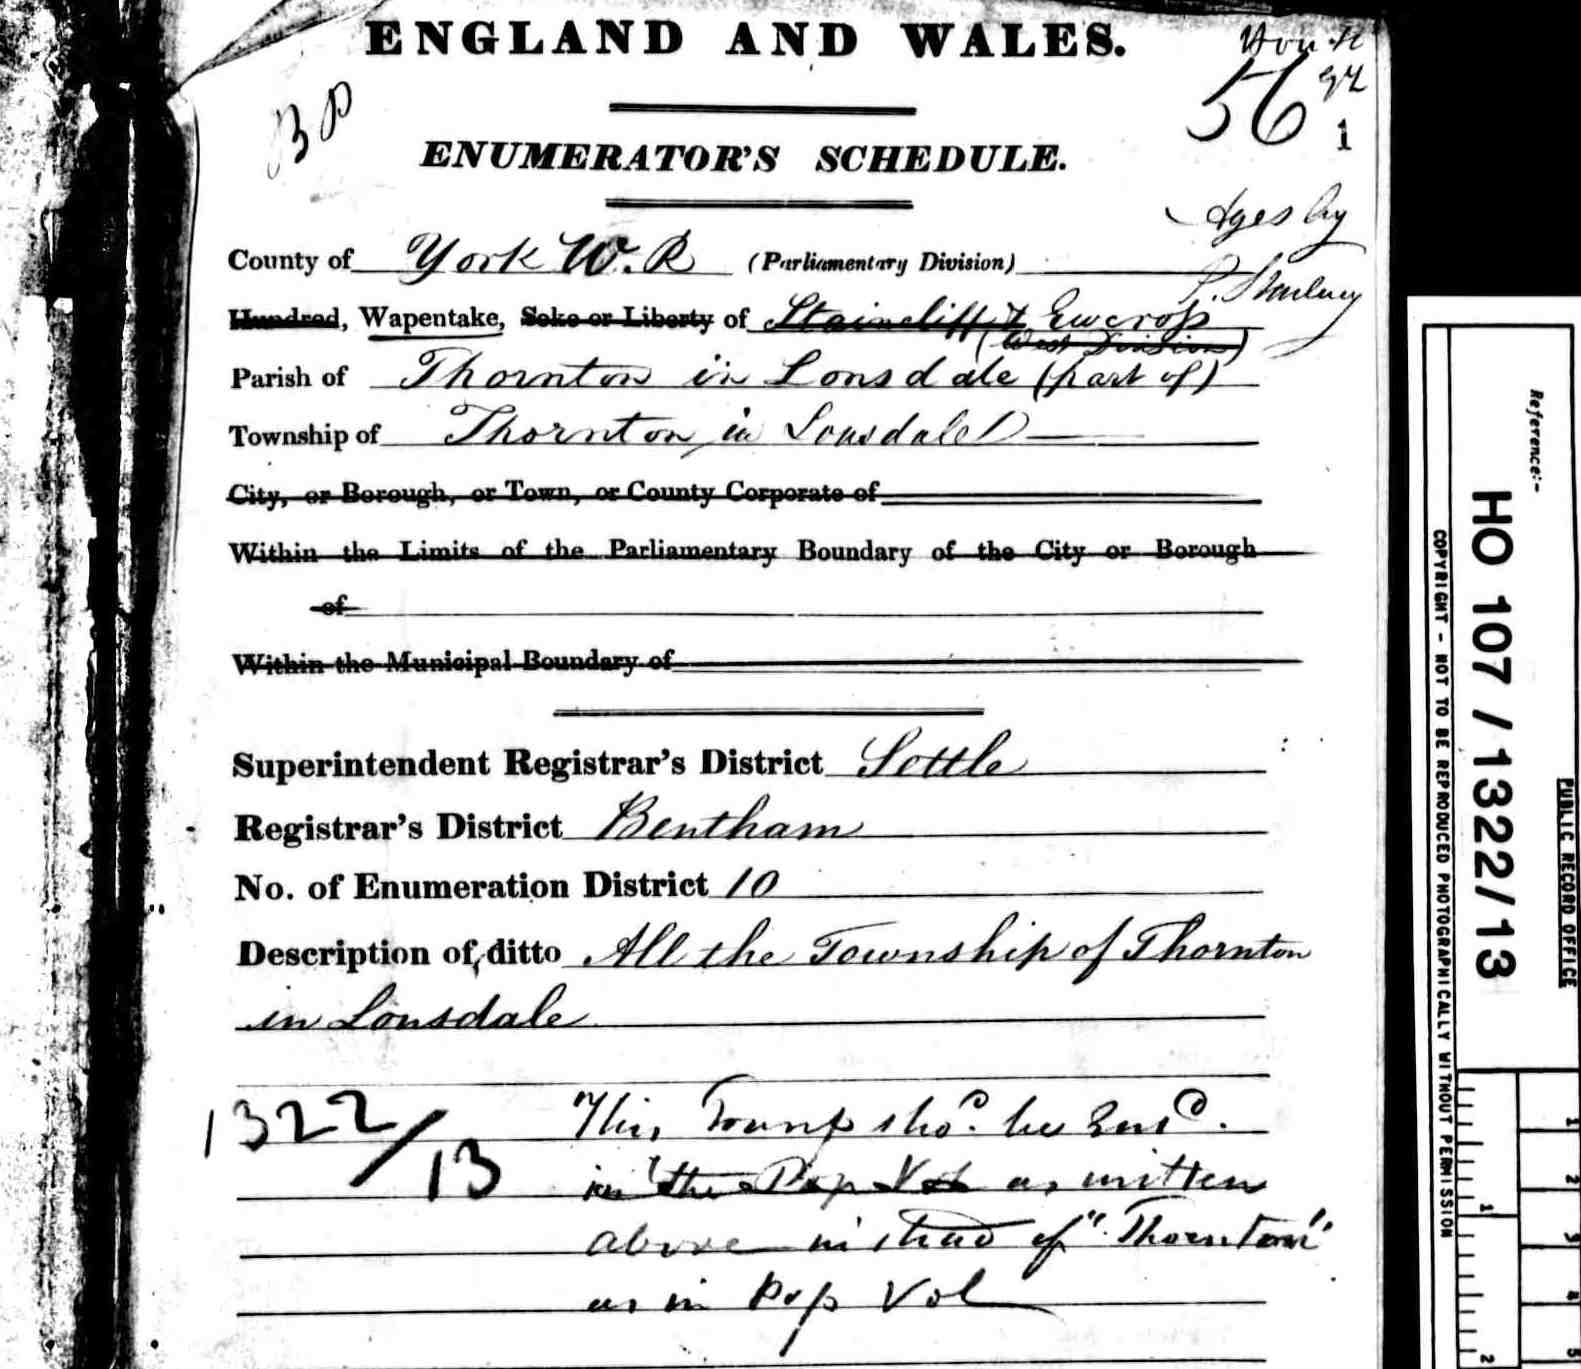 ENGLAND AND WALES.
56
1
ENUMERATOR'S SCHEDULE.
Ages by
County of York W. R (Parliamentary Division)
Hundred, Wapentake, Soke or Liberty of Staincliff & Ewcross
(West Division)
Parish of Thornton in Lonsdale (part of)
Township of Thornton in Lonsdale
City, or Borough, or Town, or County Corporate of
Within the Limits of the Parliamentary Boundary of the City or Borough
of
Within the Municipal Boundary of
Superintendent Registrar's District Settle
Registrar's District Bentham
No. of Enumeration District 10
Description of ditto All the Township of Thornton
in Lonsdale
1322/13
This Townp shod. be
in the Pop Vol as written
above instead of "Thornton"
as in Pop Vol
Reference:-
HO 107 / 1322/13
PUBLIC RECORD OFFICE
COPYRIGHT - NOT TO BE REPRODUCED PHOTOGRAPHICALLY WITHOUT PERMISSION
1
2
3
4
5
1
2